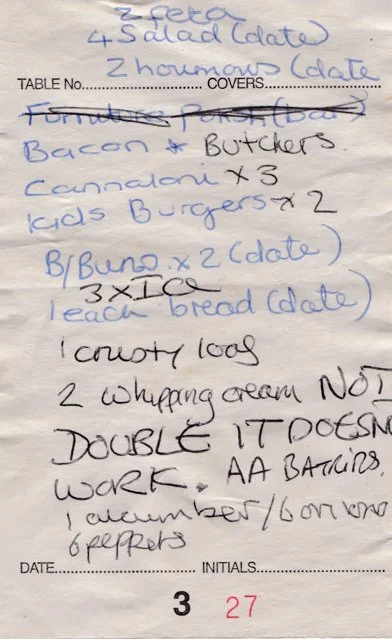 2 feta
4 Salad (date)
2 houmous (date
TABLE No. COVERS
Furniture Polish (bar)
Bacon * Butchers.
Cannaloni x 3
Kids Burgers x 2
B/Buns x 2 (date)
3 x Ice
1 each bread (date)
1 crusty loaf
2 whipping cream NOT
DOUBLE IT DOESN
WORK. AA
1 cucumber / 6 onions
6 peppers
DATE INITIALS
3 27